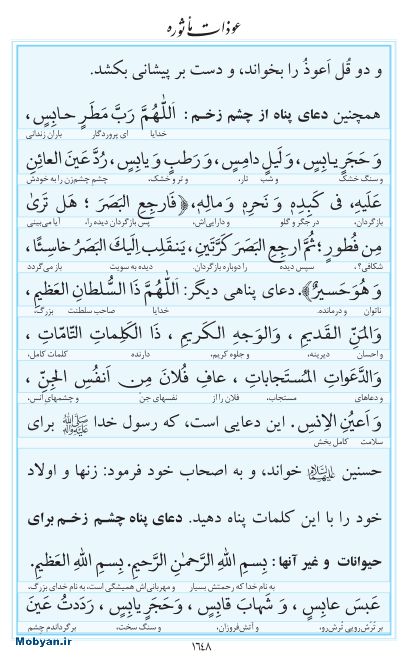 عوذات مأثوره
و دو قُل اَعوذُ را بخواند، و دست بر پیشانی بکشد.
همچنین دعای پناه از چشم زخم: اَللّٰهُمَّ رَبَّ مَطَرٍ حابِسٍ،
خدایا ای پروردگار باران زندانی
وَ حَجَرٍ یابِسٍ، وَ لَیلٍ دامِسٍ، وَ رَطبٍ وَ یابِسٍ، رُدَّ عَینَ العائِنِ
و سنگ خشک و شب تار، و تر و خشک. چشم چشم‌زن را به خودش
عَلَیهِ، فی کَبِدِهِ وَ نَحرِهِ وَ مالِهِ، ﴿فَارجِعِ البَصَرَ ؛ هَل تَریٰ
بازگردان، در جگر و گلو و دارایی‌اش. پس بازگردان دیده را، آیا می‌بینی
مِن فُطورٍ ؛ ثُمَّ ارجِعِ البَصَرَ کَرَّتَینِ، یَنقَلِب اِلَیکَ البَصَرُ خاسِئًا،
شکافی؟، سپس دیده را دوباره بازگردان. دیده به سویت باز می‌گردد
وَ هُوَ حَسیرٌ﴾. دعای پناهی دیگر: اَللّٰهُمَّ ذَا السُّلطانِ العَظیمِ،
ناتوان و درمانده. خدایا صاحب سلطنت بزرگ،
وَالمَنِّ القَدیمِ، وَالوَجهِ الکَریمِ، ذَا الکَلِماتِ التّامّاتِ،
و احسان دیرینه، و جلوه کریم، دارنده کلمات کامل،
وَالدَّعَواتِ المُستَجاباتِ، عافِ فُلانَ مِن اَنفُسِ الجِنِّ،
و دعاهای مستجاب، فلان را از نفسهای جنّ و چشمهای اُنس،
وَ اَعیُنِ الاِنسِ. این دعایی است، که رسول خدا ﷺ برای
سلامت کامل بخش
حسنین علیهما السلام خواند، و به اصحاب خود فرمود: زنها و اولاد
خود را با این کلمات پناه دهید. دعای پناه چشم زخم برای
حیوانات و غیر آنها: بِسمِ اللهِ الرَّحمٰنِ الرَّحیمِ. بِسمِ اللهِ العَظیمِ.
به نام خدا که رحمتش بسیار و مهربانی‌اش همیشگی است، به نام خدای بزرگ،
عَبَسَ عابِسٍ، وَ شَهابَ قابِسٍ، وَ حَجَرٍ یابِسٍ، رَدَدتُ عَینَ
بر تُرش‌رویی تُرش‌رو، و آتش‌فروزان، و سنگ سخت، برگرداندم چشم
۱۶۴۸
Mobyan.ir